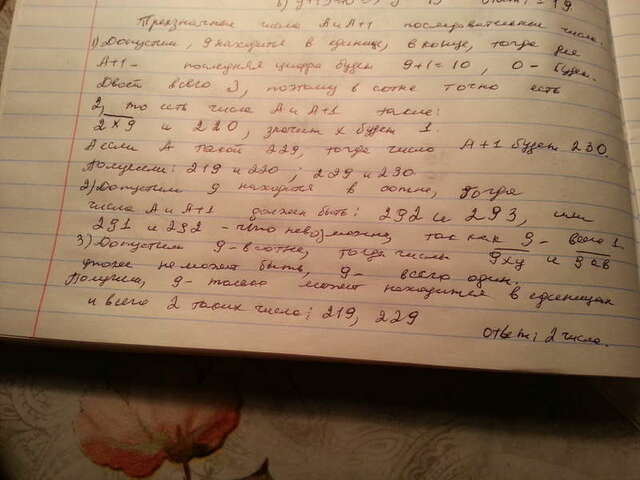 Трехзначные числа А и А+1 последовательные числа.
1) Допустим, 9 находится в единице, в конце, тогда для
А+1 - последняя цифра будет 9+1=10, 0 - будет.
Двоек всего 3, поэтому в сотне точно есть
2, то есть числа А и А+1 такие:
2х9 и 220, значит х будет 1.
А если А такой 229, тогда число А+1 будет 230.
Получили: 219 и 220; 229 и 230
2) Допустим 9 находится в , тогда
числа А и А+1 должен быть: 292 и 293, или
291 и 292 - что невозможно, так как 9 - всего 1
3) Допустим 9 - в сотне, тогда числы 9ху и 9ав
не может быть, 9 - всего один.
Получим, 9 - только может находится в единицах
и всего 2 таких число: 219, 229
ответ: 2 числа.